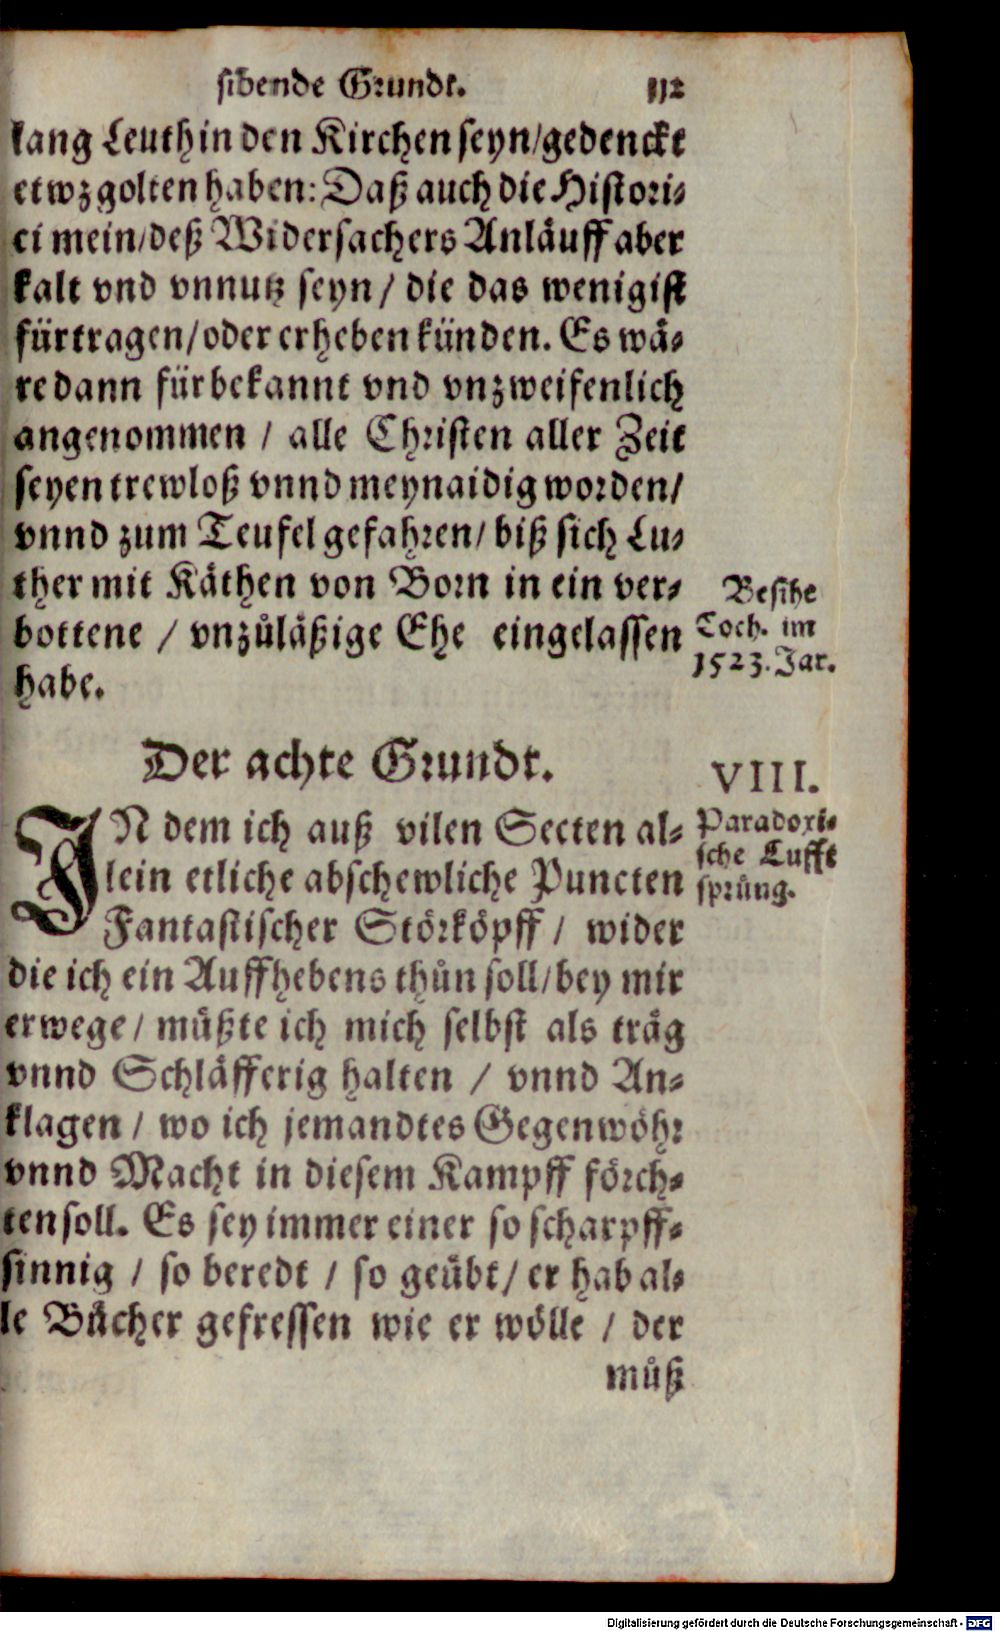 sibende Grundt. 112
lang Leuth in den Kirchen seyn/gedenckt
etwz golten haben: Daß auch die Histori-
ci mein/deß Widersachers Anläuff aber
kalt vnd vnnutz seyn / die das wenigist
fürtragen/oder erheben künden. Es wä-
re dann für bekannt vnd vnzweifenlich
angenommen / alle Christen aller Zeit
seyen trewloß vnnd meynaidig worden/
vnnd zum Teufel gefahren/ biß sich Lu-
ther mit Käthen von Born in ein ver-
bottene / vnzůläßige Ehe eingelassen
habe.
Besihe
Coch. im
1523. Jar.
Der achte Grundt.
VIII.
Paradoxi-
sche Lufft
sprüng.
IN dem ich auß vilen Secten al-
lein etliche abschewliche Puncten
Fantastischer Störköpff / wider
die ich ein Auffhebens thůn soll/bey mir
erwege / müßte ich mich selbst als träg
vnnd Schläfferig halten / vnnd An-
klagen / wo ich jemandtes Gegenwöhr
vnnd Macht in diesem Kampff förch-
ten soll. Es sey immer einer so scharpff-
sinnig / so beredt / so geübt/ er hab al-
le Bücher gefressen wie er wölle / der
můß
Digitalisierung gefördert durch die Deutsche Forschungsgemeinschaft - DFG